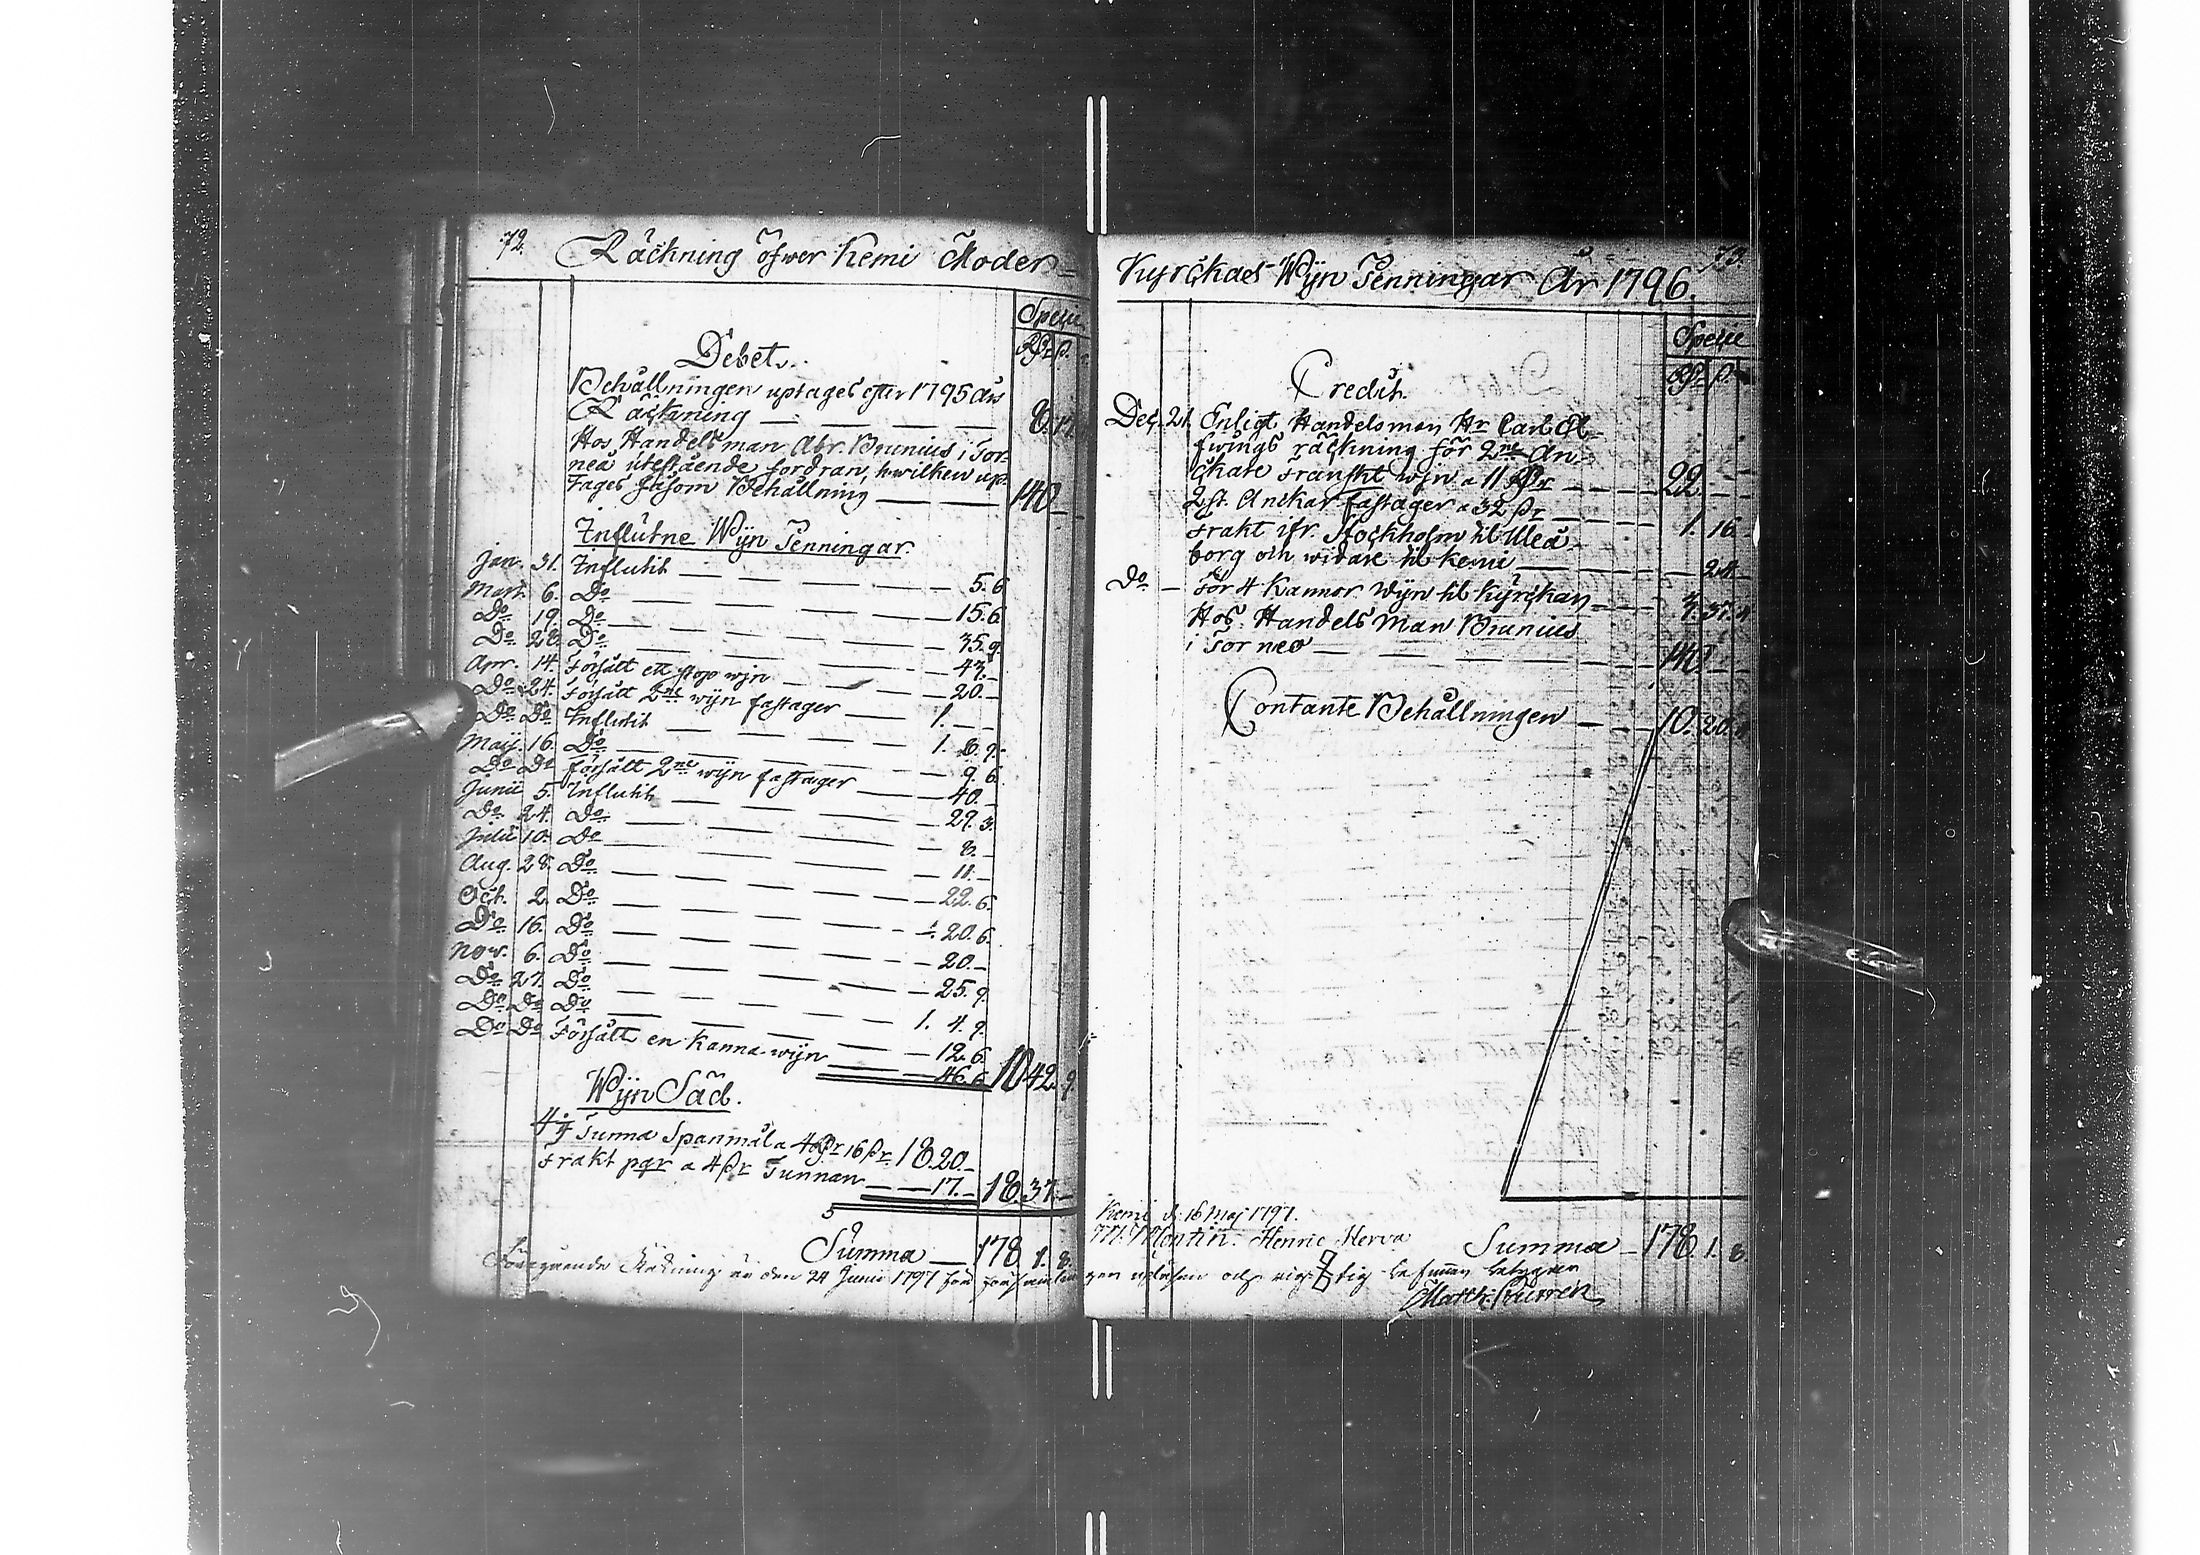 72.
Räckning öfwer Kemi Moder-
Specie
Rdr ß.
Debet.
Behållningen uptages efter 1795 års
Räckning — — — — 8.17
Hos Handelsman Abr. Brunius i Tor-
neå utestående fordran, hwilken up-
tages såsom Behållning — — 140 — —
Influtne Wijn Penningar.
Jan. 31. Influtit — — — — 5.6
Mart. 6. Do — — — — 15.6
Do 19. Do — — — — 35.9
Do 28. Do — — — — 43.-
Apr. 14. Försålt ett stop wijn — — 20.-
Do 24. Försålt 2ne wijn fastager — 1.-
Do Do Influtit — — — — 1. 8. 9.
Maij. 16. Do — — — — 9. 6
Do Do försålt 2ne wijn fastager — 40.-
Junii 5. Influtit — — — — 29. 3.
Do 24. Do — — — — 8.-
Julii 10. Do — — — — 11.-
Aug. 28. Do — — — — 22. 6.
Oct. 2. Do — — — — 20. 6.
Do 16. Do — — — — 20.-
Nov. 6. Do — — — — 25. 9
Do 27. Do — — — — 1. 4. 9.
Do Do Do — — — — 12. 6
Do Do Försålt en Kanna wijn — — 46. 6 10 42. 9
Wijn Säd.
Tunna Spanmål a 4 Rdr 16 ßr. 18.20.-
Frakt pgr a 4 ßr Tunnan — — 17.- 18.37.-
Summa — 178. 1. 8.
Kyrckaes Wijn Penningar År 1796.
73.
Specie
Rdr ß.
Credit.
Dec. 21. Enligt Handelsman Hr Carl
räckning för 2ne An-
ckare Franskt wijn a 11 Rdr — — 22. — —
2 st. Anckar fastager a 32 ßr — — 1. 16. -
Frakt ifr. Stockholm til Uleå-
borg och widare til Kemi — — — 24 -
Do — För 4 Kannor Wijn til Kyrckan — — 3. 37. 4
Hos Handels Man Brunius
i Torneo — — — — 140 — —
Contante Behållningen — — 10. 20. 4
Kemi d. 16 Maj 1797.
M. Montin. Henric Herva
Summa — 178. 1. 8.
Föregående Räkning är den 24 Junii 1797 för församlingen upläsen och rigtig befunnen betygar
Matth: